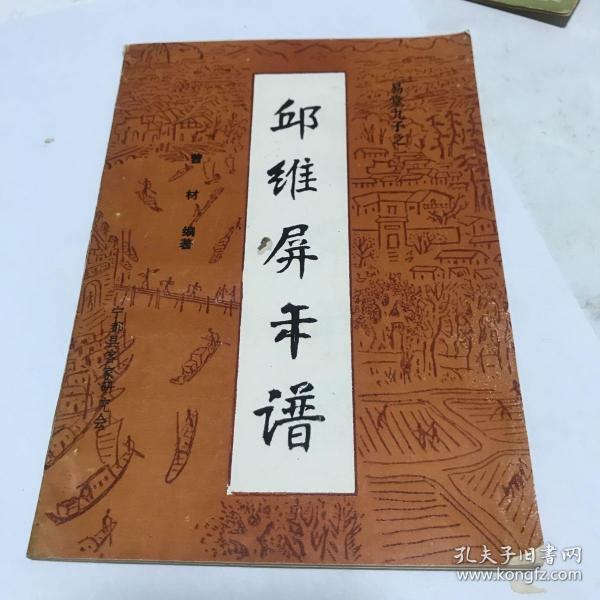 易堂九子之一
邱维屏年谱
曾材编著
宁都县客家研究会
孔夫子旧书网
www.kongfz.com